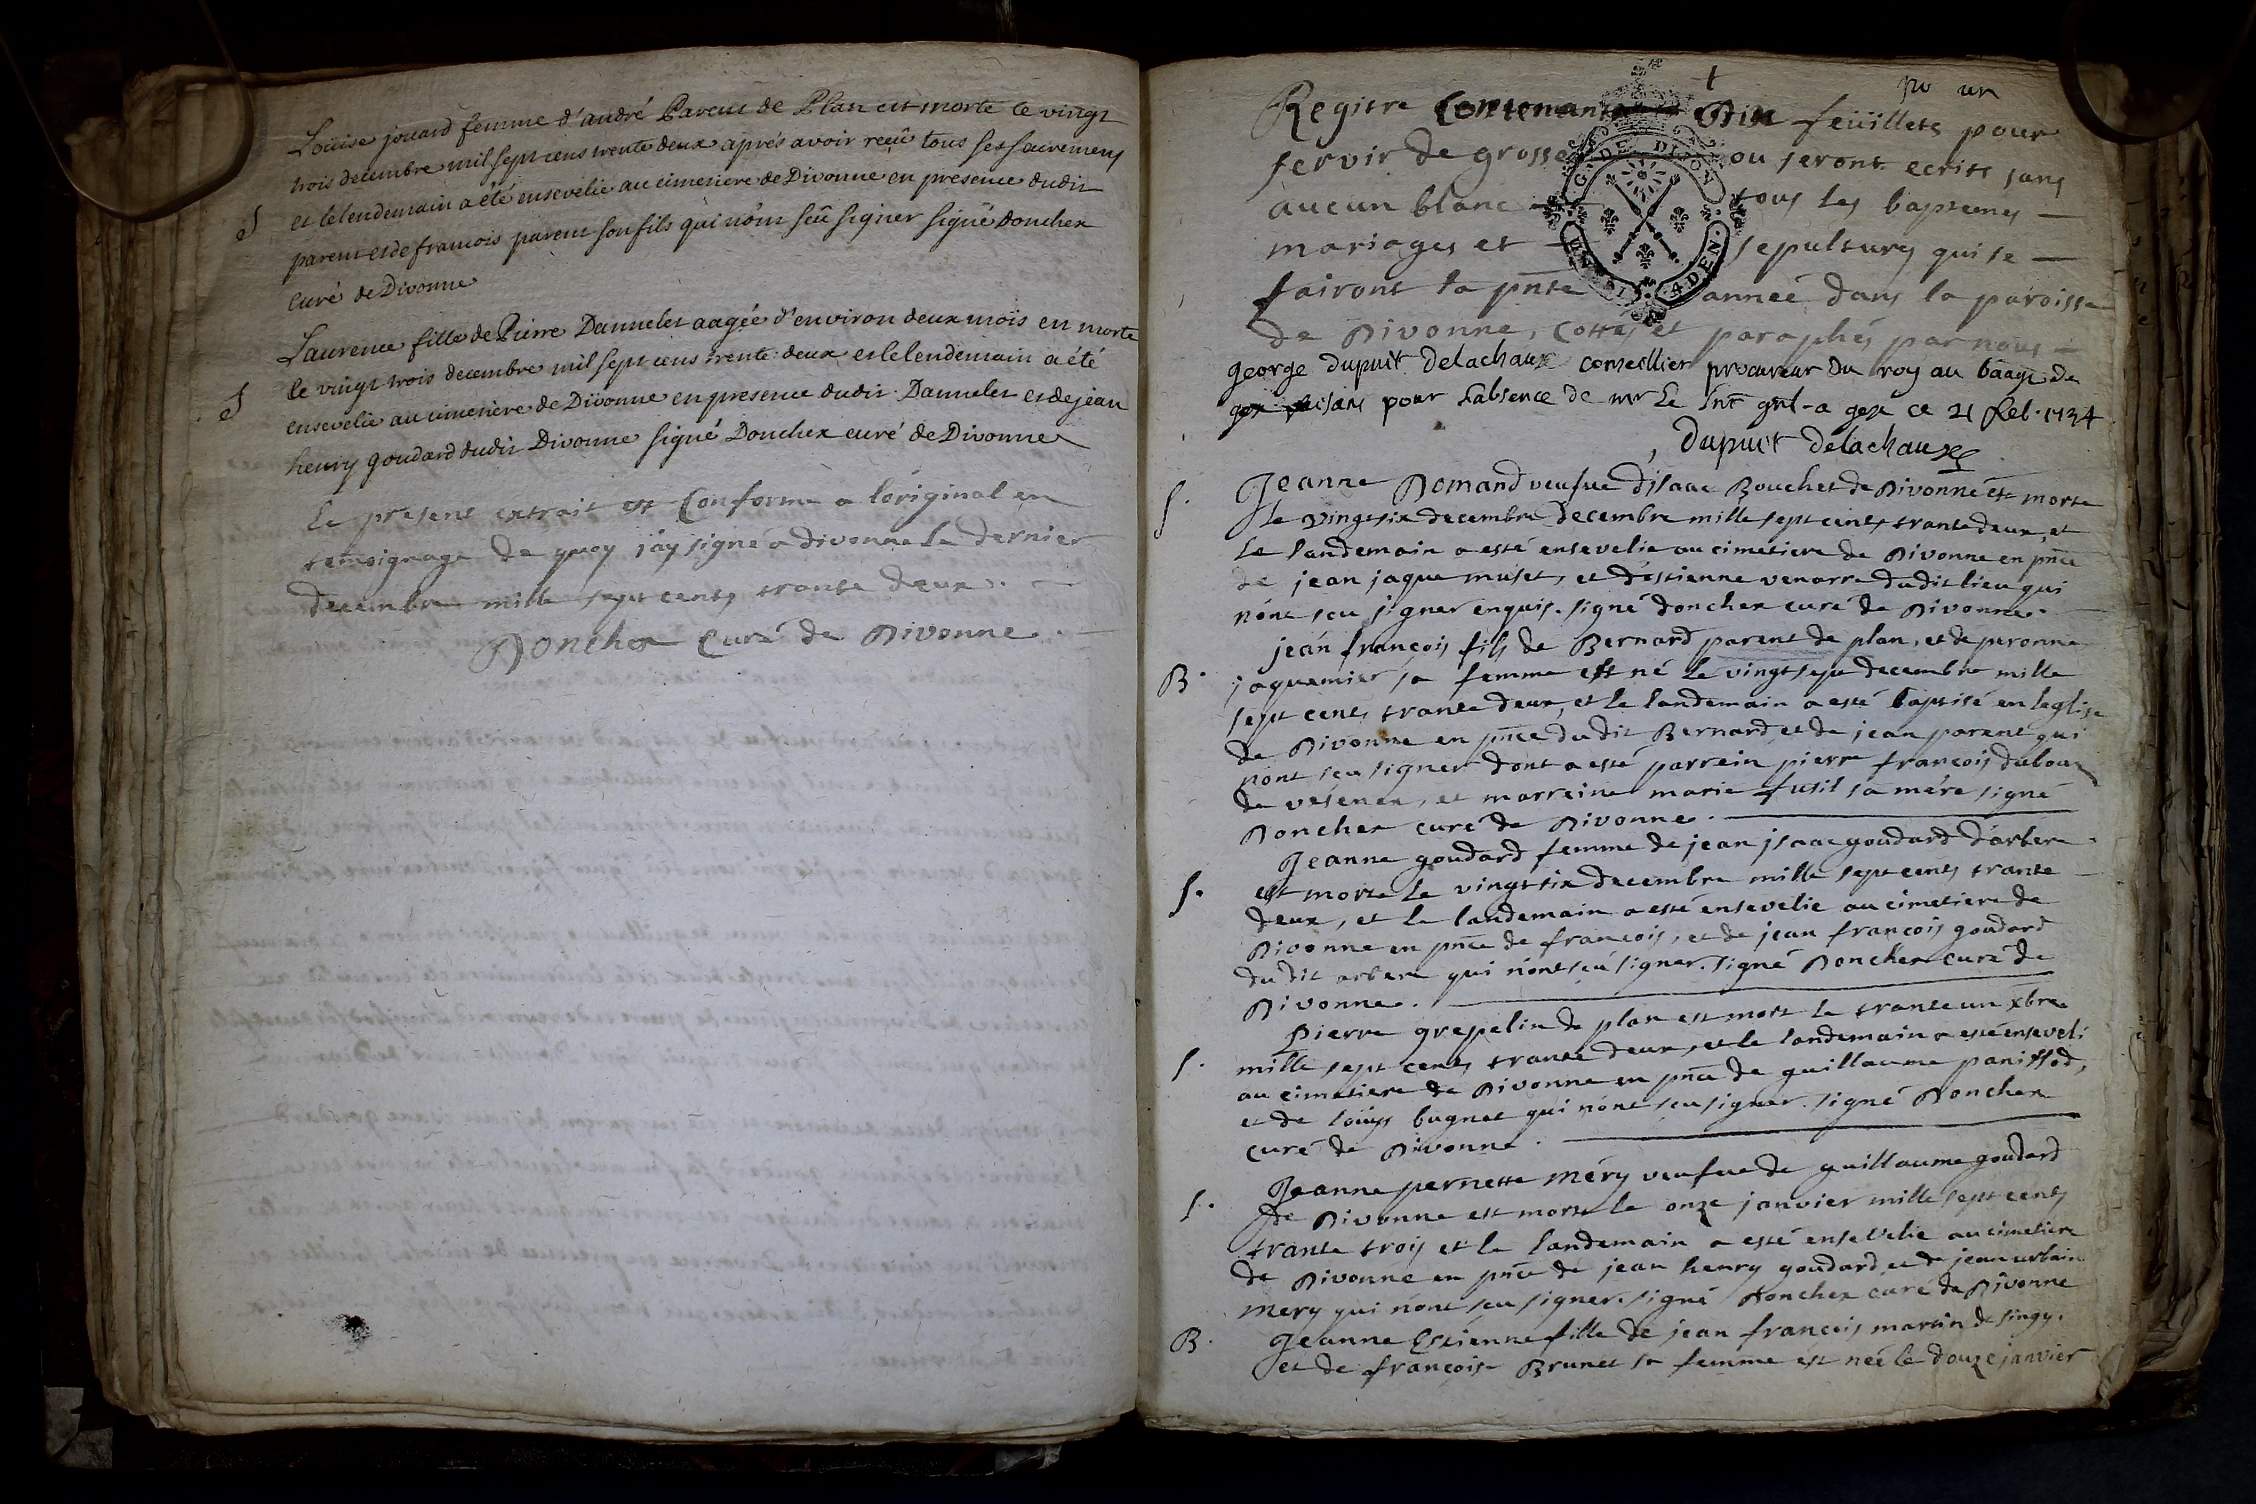 Loüise jouard femme d'andré Parent de Plan est morte le vingt
trois decembre mil sept cens trente deux aprés avoir reçû tous ses sacremens
S
et le lendemain a été ensevelie au cimetiere de Divonne en presence dudit
parent et de francois parent son fils qui n'ont sçû signer signé Donchex
curé de Divonne
Laurence fille de Pierre Dannelet aagée d'environ deux mois est morte
le vingt trois decembre mil sept cens trente deux et le lendemain a été
S
ensevelie au cimetiere de Divonne en presence dudit Dannelet et de jean
henry goudard dudit Divonne signé Donchex curé de Divonne
Le present extrait est Conforme a l'original en
temoignage de quoy j'ay signé a divonne le dernier
decembre mille sept cents trante deux.
Donchex Curé de Divonne.
no un
Registre Contenant Dix feüillets pour
servir de grosse ou seront ecrits sans
aucun blanc tous les baptemes
mariages et sepultures qui se
fairont la pnte anneé dans la paroisse
de Divonne, Cottes et paraphés par nous
G. DE. DIJON
ADEN
george dupuit delachaux conseillier procureur du roy au baage de
gex faisant pour l'absence de mr Le lnt gnl a gex ce 21 feb. 1734
dupuit delachaux
S.
Jeanne Domand veufve d'isaac Bouchet de Divonne est morte
Le vingtsix decembre decembre mille sept cents trante deux, et
le landemain a esté ensevelie au cimetiere de Divonne en pnce
de jean jaque muset, et d'estienne venarre dudit lieu qui
n'ont sçu signer enquis. signé donchex curé de Divonne.
jean françois fils de Bernard parent de plan, et de peronne
B.
jaquemier sa femme est né le vingtsept decembre mille
sept cents trante deux, et le landemain a esté baptisé en leglise
de Divonne en pnce dudit Bernard, et de jean parent qui
n'ont sçu signer dont a esté parrein pierre françois dubour
de vesenex, et marreine marie fusil sa mére signé
Donchex curé de Divonne.
Jeanne goudard femme de jean jsaac goudard d'arbere
S.
est morte le vingtsix decembre mille sept cents trante
deux, et le landemain a esté ensevelie au cimetiere de
Divonne en pnce de francois, et de jean françois goudard
du dit arbere qui n'ont sçu signer. signé Donchex curé de
Divonne.
Pierre grepelin de plan est mort le trante un xbre
S.
mille sept cents trante deux, et le landemain a esté enseveli
au cimetiere de Divonne en pnce de guillaume panissod,
et de loüys bugnet qui n'ont sçu signer. signé Donchex
curé de Divonne.
Jeanne pernette mery veufve de guillaume goudard
S.
de Divonne est morte le onze janvier mille sept cents
trante trois et le landemain a esté ensevelie au cimetiere
de Divonne en pnce de jean henry goudard, et de jean urbain
mery qui n'ont sçu signer. signé Donchex curé de Divonne
B.
Jeanne Estienne fille de jean françois martin de singy.
et de françoise Brunet sa femme est neé le douze janvier